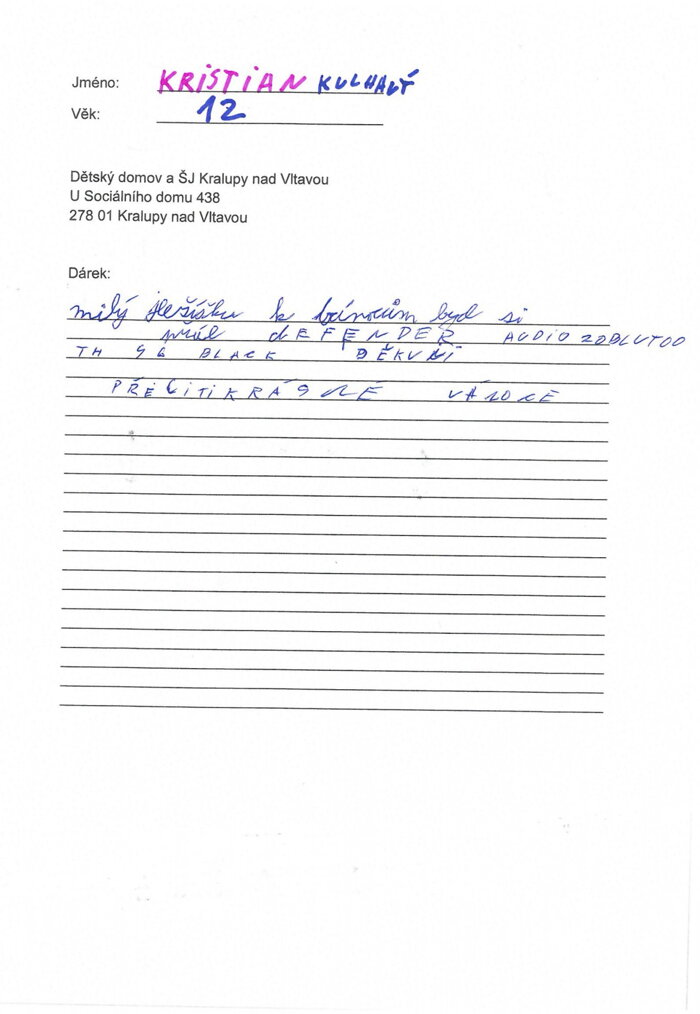 Jméno: KRISTIAN KULHAVÝ
Věk: 12
Dětský domov a ŠJ Kralupy nad Vltavou
U Sociálního domu 438
278 01 Kralupy nad Vltavou
Dárek:
milý Ježíšku k bánocům byd si
přál dEFENDER AUDIO
BLACK DĚKUJI
PŘEJI TI KRÁSNÉ VÁNOCE